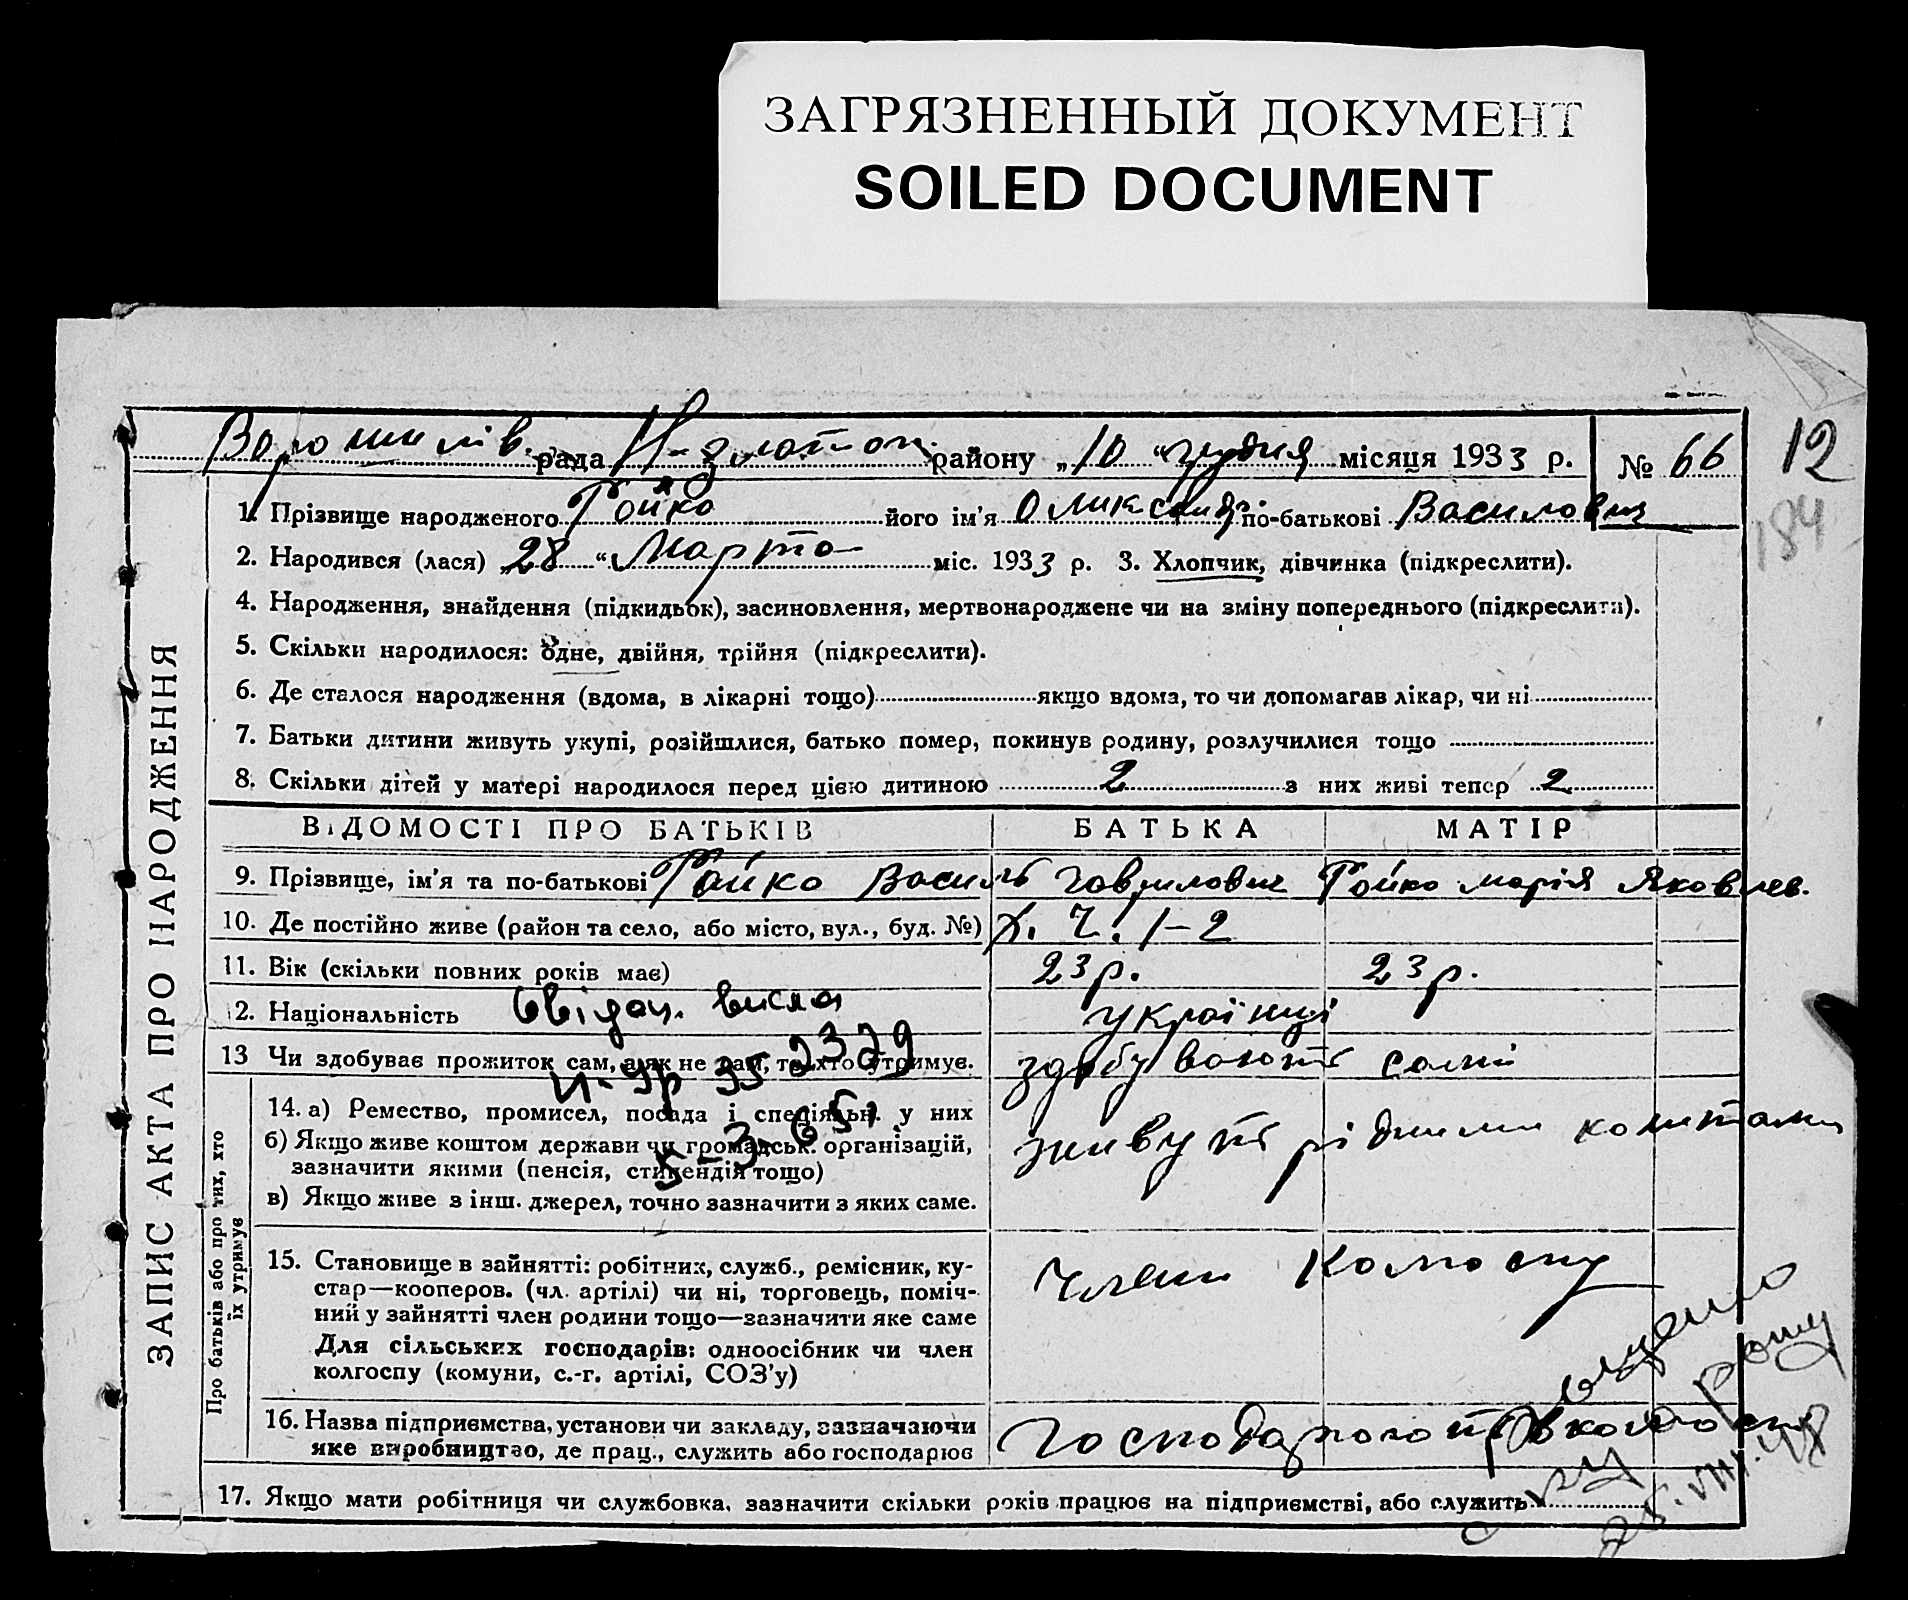 ЗАГРЯЗНЕННЫЙ ДОКУМЕНТ
SOILED DOCUMENT
Ворошилів. рада Н-златоп. району „10 “ грудня місяця 1933 р. № 66
12
184
1. Прізвище народженого Гойко його ім'я Олександр по-батькові Василович
2. Народився (лася) 28 “ Марта міс. 1933 р. 3. Хлопчик, дівчинка (підкреслити).
4. Народження, знайдення (підкидьок), засиновлення, мертвонароджене чи на зміну попереднього (підкреслити).
5. Скільки народилося: одне, двійня, трійня (підкреслити).
6. Де сталося народження (вдома, в лікарні тощо) якщо вдома, то чи допомагав лікар, чи ні
7. Батьки дитини живуть укупі, розійшлися, батько помер, покинув родину, розлучилися тощо
8. Скільки дітей у матері народилося перед цією дитиною 2 з них живі тепер 2
ЗАПИС АКТА ПРО НАРОДЖЕННЯ
ВІДОМОСТІ ПРО БАТЬКІВ БАТЬКА МАТІР
9. Прізвище, ім'я та по-батькові Гойко Василь Гаврилович Гойко Марія Яковлев.
10. Де постійно живе (район та село, або місто, вул., буд. №) Х. Ч. 1-2
11. Вік (скільки повних років має) 23 р. 23 р.
12. Національність українці
13 Чи здобуває прожиток сам, а як не сам, то хто утримує. здобувають самі
Про батьків або про тих, хто їх утримує
14. а) Ремество, промисел, посада і спеціяльн. у них
б) Якщо живе коштом держави чи громадськ. організацій,
зазначити якими (пенсія, стипендія тощо)
в) Якщо живе з інш. джерел, точно зазначити з яких саме.
живуть рідними коштами
15. Становище в зайнятті: робітник, служб., ремісник, ку-
стар—кооперов. (чл. артілі) чи ні, торговець, поміч-
ний у зайнятті член родини тощо—зазначити яке саме
Для сільських господарів: одноосібник чи член
колгоспу (комуни, с.-г. артілі, СОЗ'у)
члени Колгоспу
16. Назва підприємства, установи чи закладу, зазначаючи
яке виробництво, де прац., служить або господарює
господарюють в колгоспі
17. Якщо мати робітниця чи службовка, зазначити скільки років працює на підприємстві, або служить